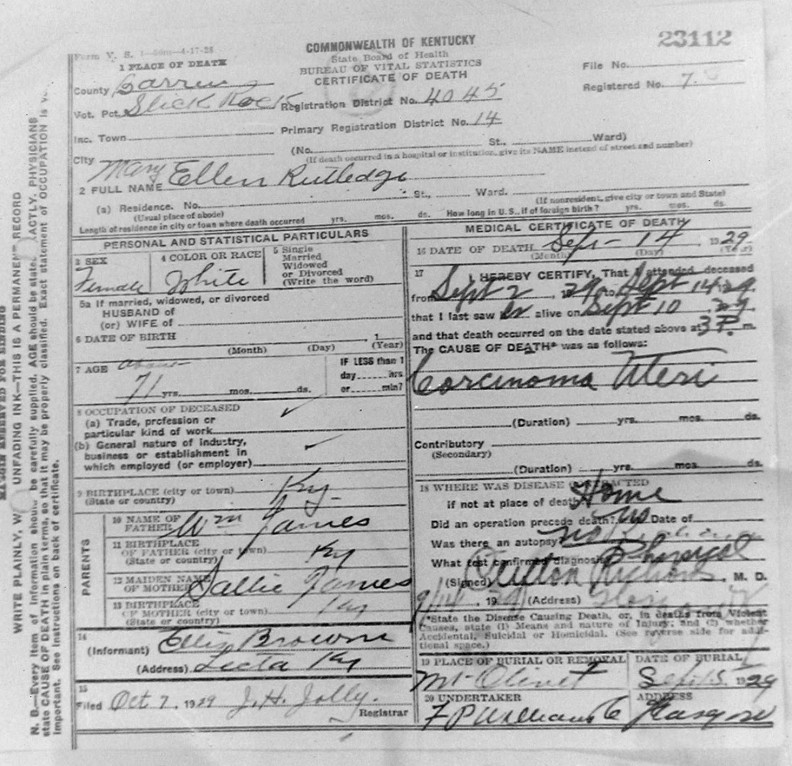 Form V. S.
COMMONWEALTH OF KENTUCKY
State Board of Health
BUREAU OF VITAL STATISTICS
CERTIFICATE OF DEATH
23112
File No.
Registered No. 7
1 PLACE OF DEATH
County Barren
Vot. Pct. Slick Rock Registration District No. 4045
Inc. Town Primary Registration District No. 14
City (No. St., Ward)
(If death occurred in a hospital or institution, give its NAME instead of street and number)
2 FULL NAME Mary Ellen Rutledge
(a) Residence. No. St., Ward.
(Usual place of abode) (If nonresident, give city or town and State)
Length of residence in city or town where death occurred yrs. mos. ds. How long in U. S., if of foreign birth? yrs. mos. ds.
PERSONAL AND STATISTICAL PARTICULARS
3 SEX Female
4 COLOR OR RACE White
5 Single
Married
Widowed
or Divorced
(Write the word)
5a If married, widowed, or divorced
HUSBAND of
(or) WIFE of
6 DATE OF BIRTH , 1
(Month) (Day) (Year)
7 AGE about
71 yrs. mos. ds.
IF LESS than 1
day hrs
or min?
8 OCCUPATION OF DECEASED
(a) Trade, profession or
particular kind of work
(b) General nature of industry,
business or establishment in
which employed (or employer)
9 BIRTHPLACE (city or town) Ky
(State or country)
PARENTS
10 NAME OF
FATHER Wm James
11 BIRTHPLACE
OF FATHER (city or town) Ky
(State or country)
12 MAIDEN NAME
OF MOTHER Sallie James
13 BIRTHPLACE
OF MOTHER (city or town) Ky
(State or country)
14
(Informant) Ellis Browne
(Address) Lecta Ky
15
Filed Oct 7, 1929 J. H. Jolly.
Registrar
MEDICAL CERTIFICATE OF DEATH
16 DATE OF DEATH Sept - 14 1929
(Month) (Day) (Year)
17 I HEREBY CERTIFY, That I attended deceased
from Sept 2, 29, to Sept 14, 29
that I last saw er alive on Sept 10 29
and that death occurred on the date stated above at 3 P. m.
The CAUSE OF DEATH* was as follows:
Carcinoma Uteri
(Duration) yrs. mos. ds.
Contributory
(Secondary)
(Duration) yrs. mos. ds.
18 WHERE WAS DISEASE CONTRACTED
if not at place of death? Home
Did an operation precede death? no Date of
Was there an autopsy? no
What test confirmed diagnosis? Physical
(Signed) Clifton , M. D.
9/14, 1929 (Address)
*State the Disease Causing Death, or, in deaths from Violent
Causes, state (1) Means and Nature of Injury; and (2) whether
Accidental, Suicidal or Homicidal. (See reverse side for additional space.)
19 PLACE OF BURIAL OR REMOVAL
Mt Olivet
DATE OF BURIAL
Sept 15, 1929
20 UNDERTAKER
F P Williams
ADDRESS
Glasgow
MARGIN RESERVED FOR BINDING
WRITE PLAINLY, W UNFADING INK—THIS IS A PERMANENT RECORD
N. B.—Every item of information should be carefully supplied. AGE should be stated EXACTLY. PHYSICIANS
state CAUSE OF DEATH in plain terms, so that it may be properly classified. Exact statement of OCCUPATION is v
important. See instructions on back of certificate.